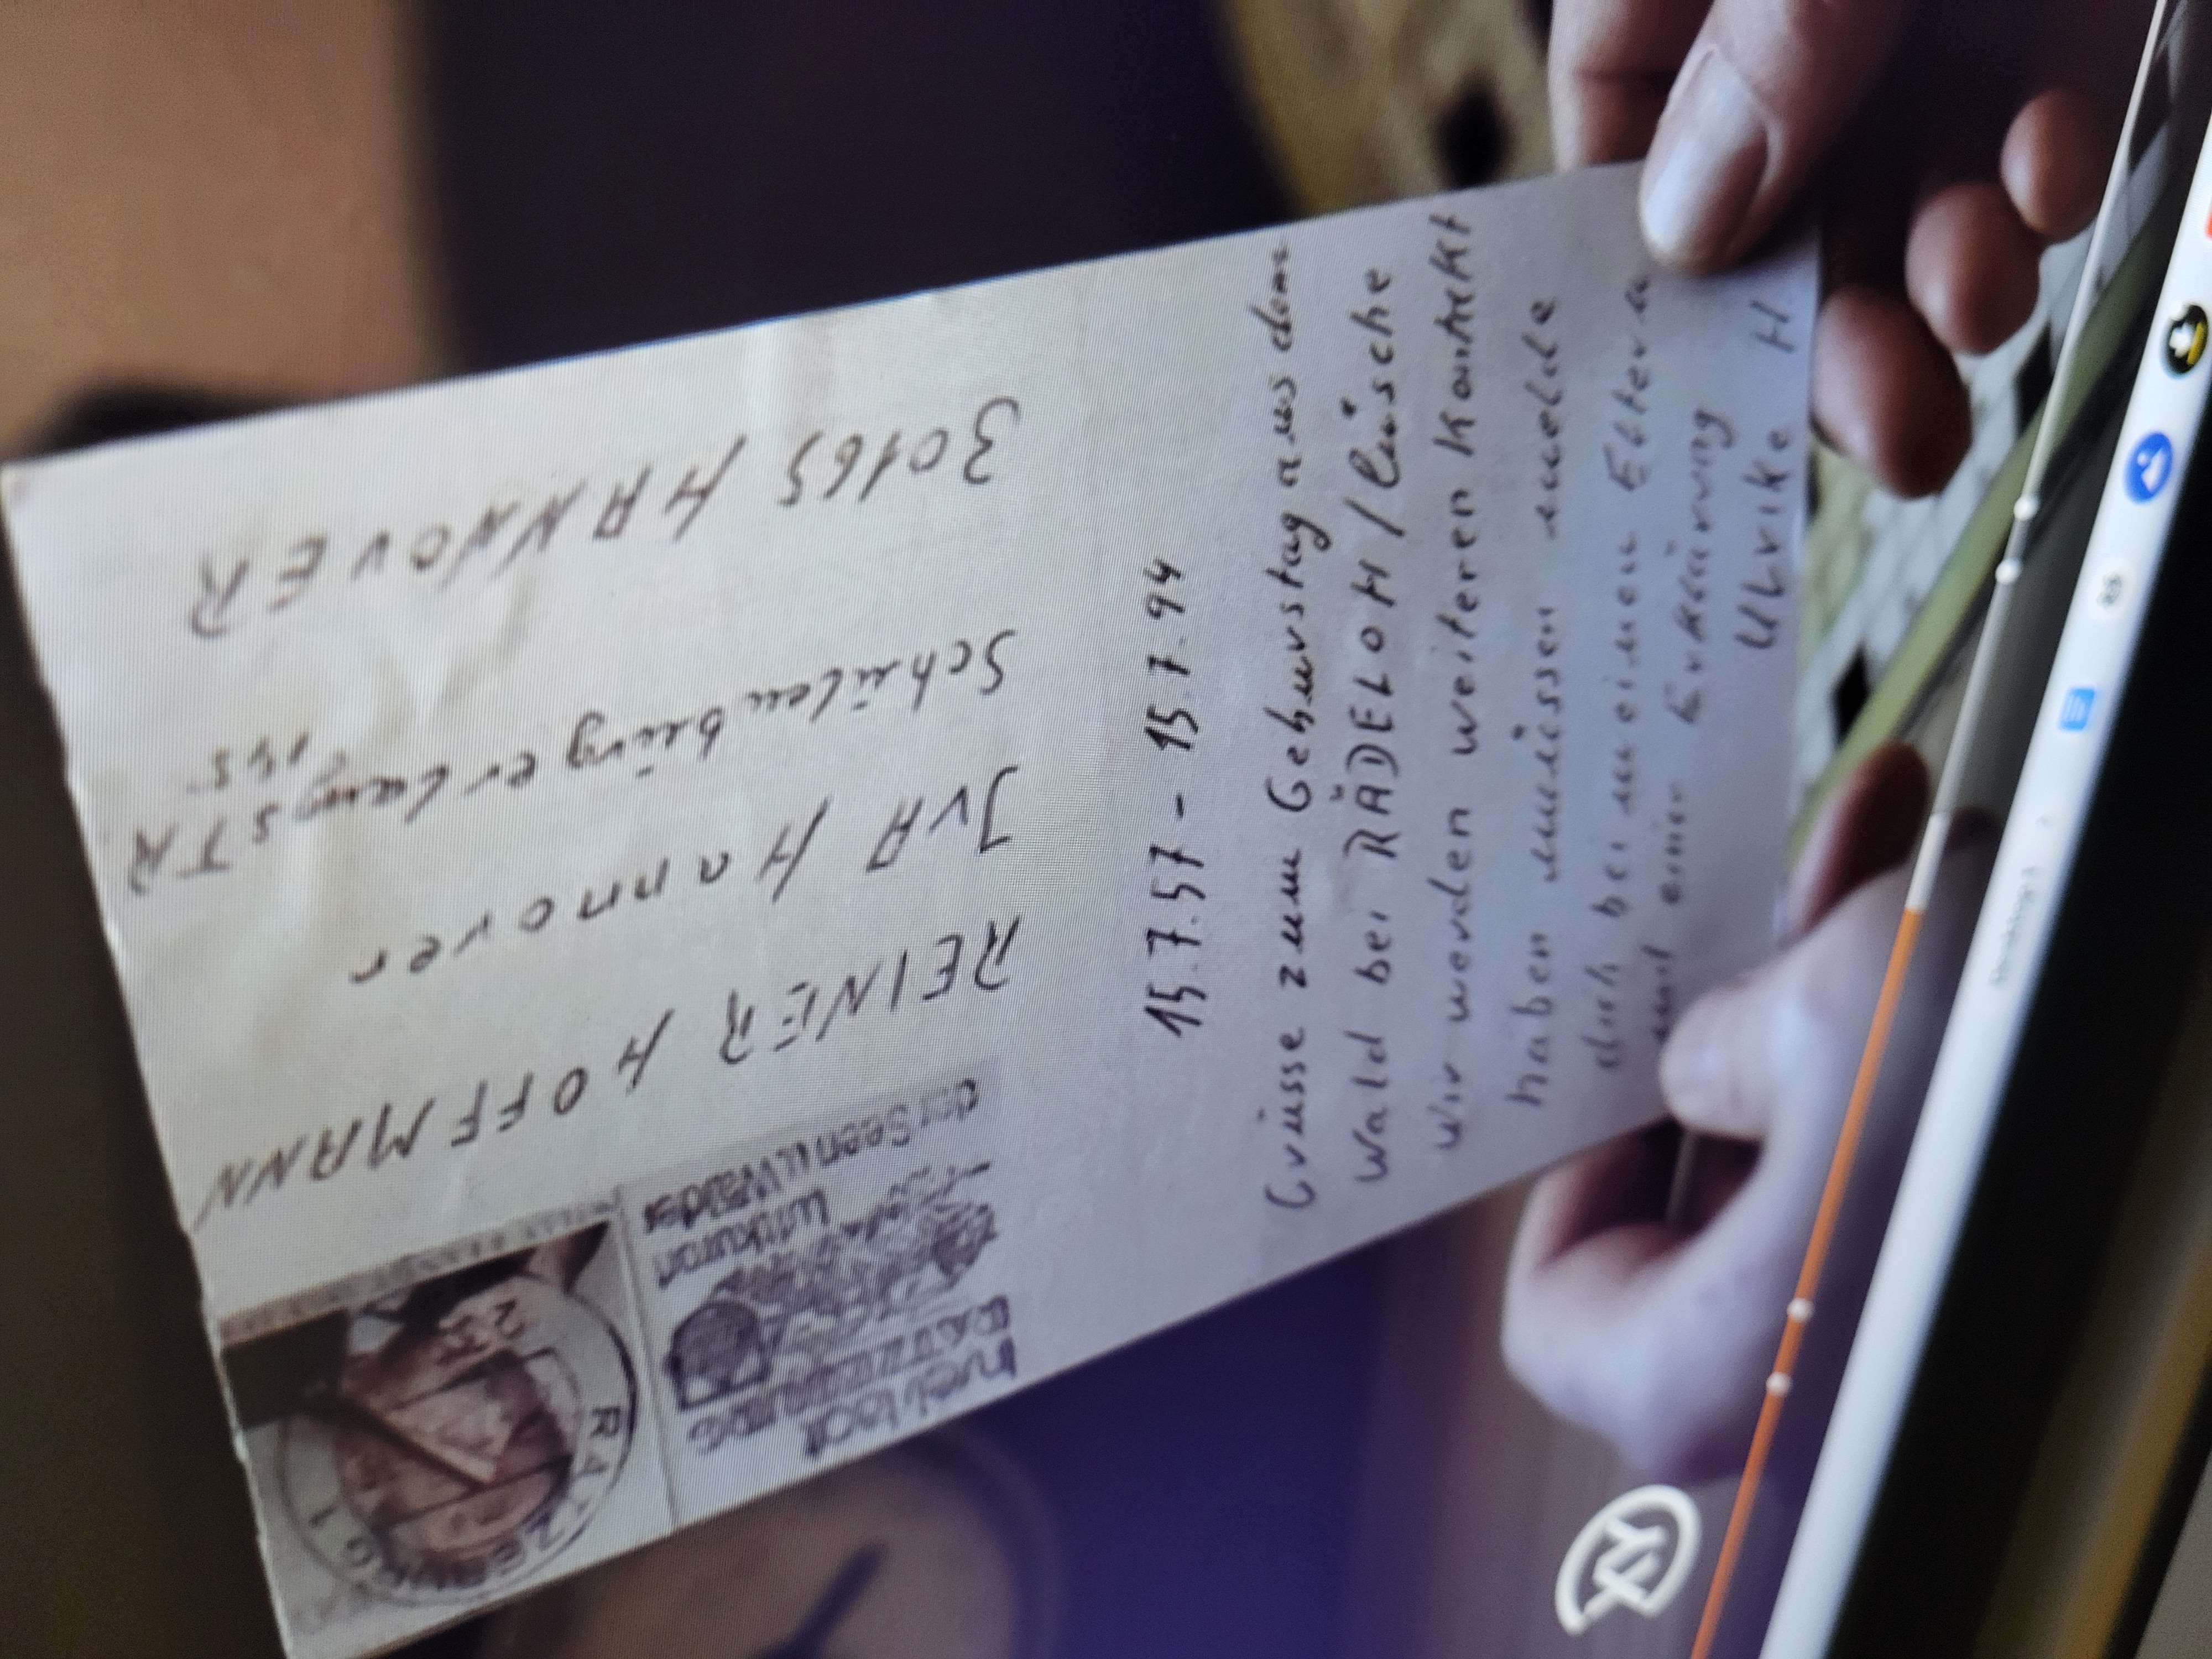 15.7.57 - 15.7.94
Grüsse zum Geburstag aus dem
Wald bei RÄDELOH / Lüsche
wir werden weiteren Kontakt
haben müssen melde
dich bei meinen Eltern
mit einer Erklärung
Ulrike H
REINER HOFFMANN
JVA Hannover
SchulenburgerlangSTR
145
30165 HANNOVER
RATZEBURG 1
23
Inselstadt
RATZEBURG
Luftkurort
der Seen u. Wälder